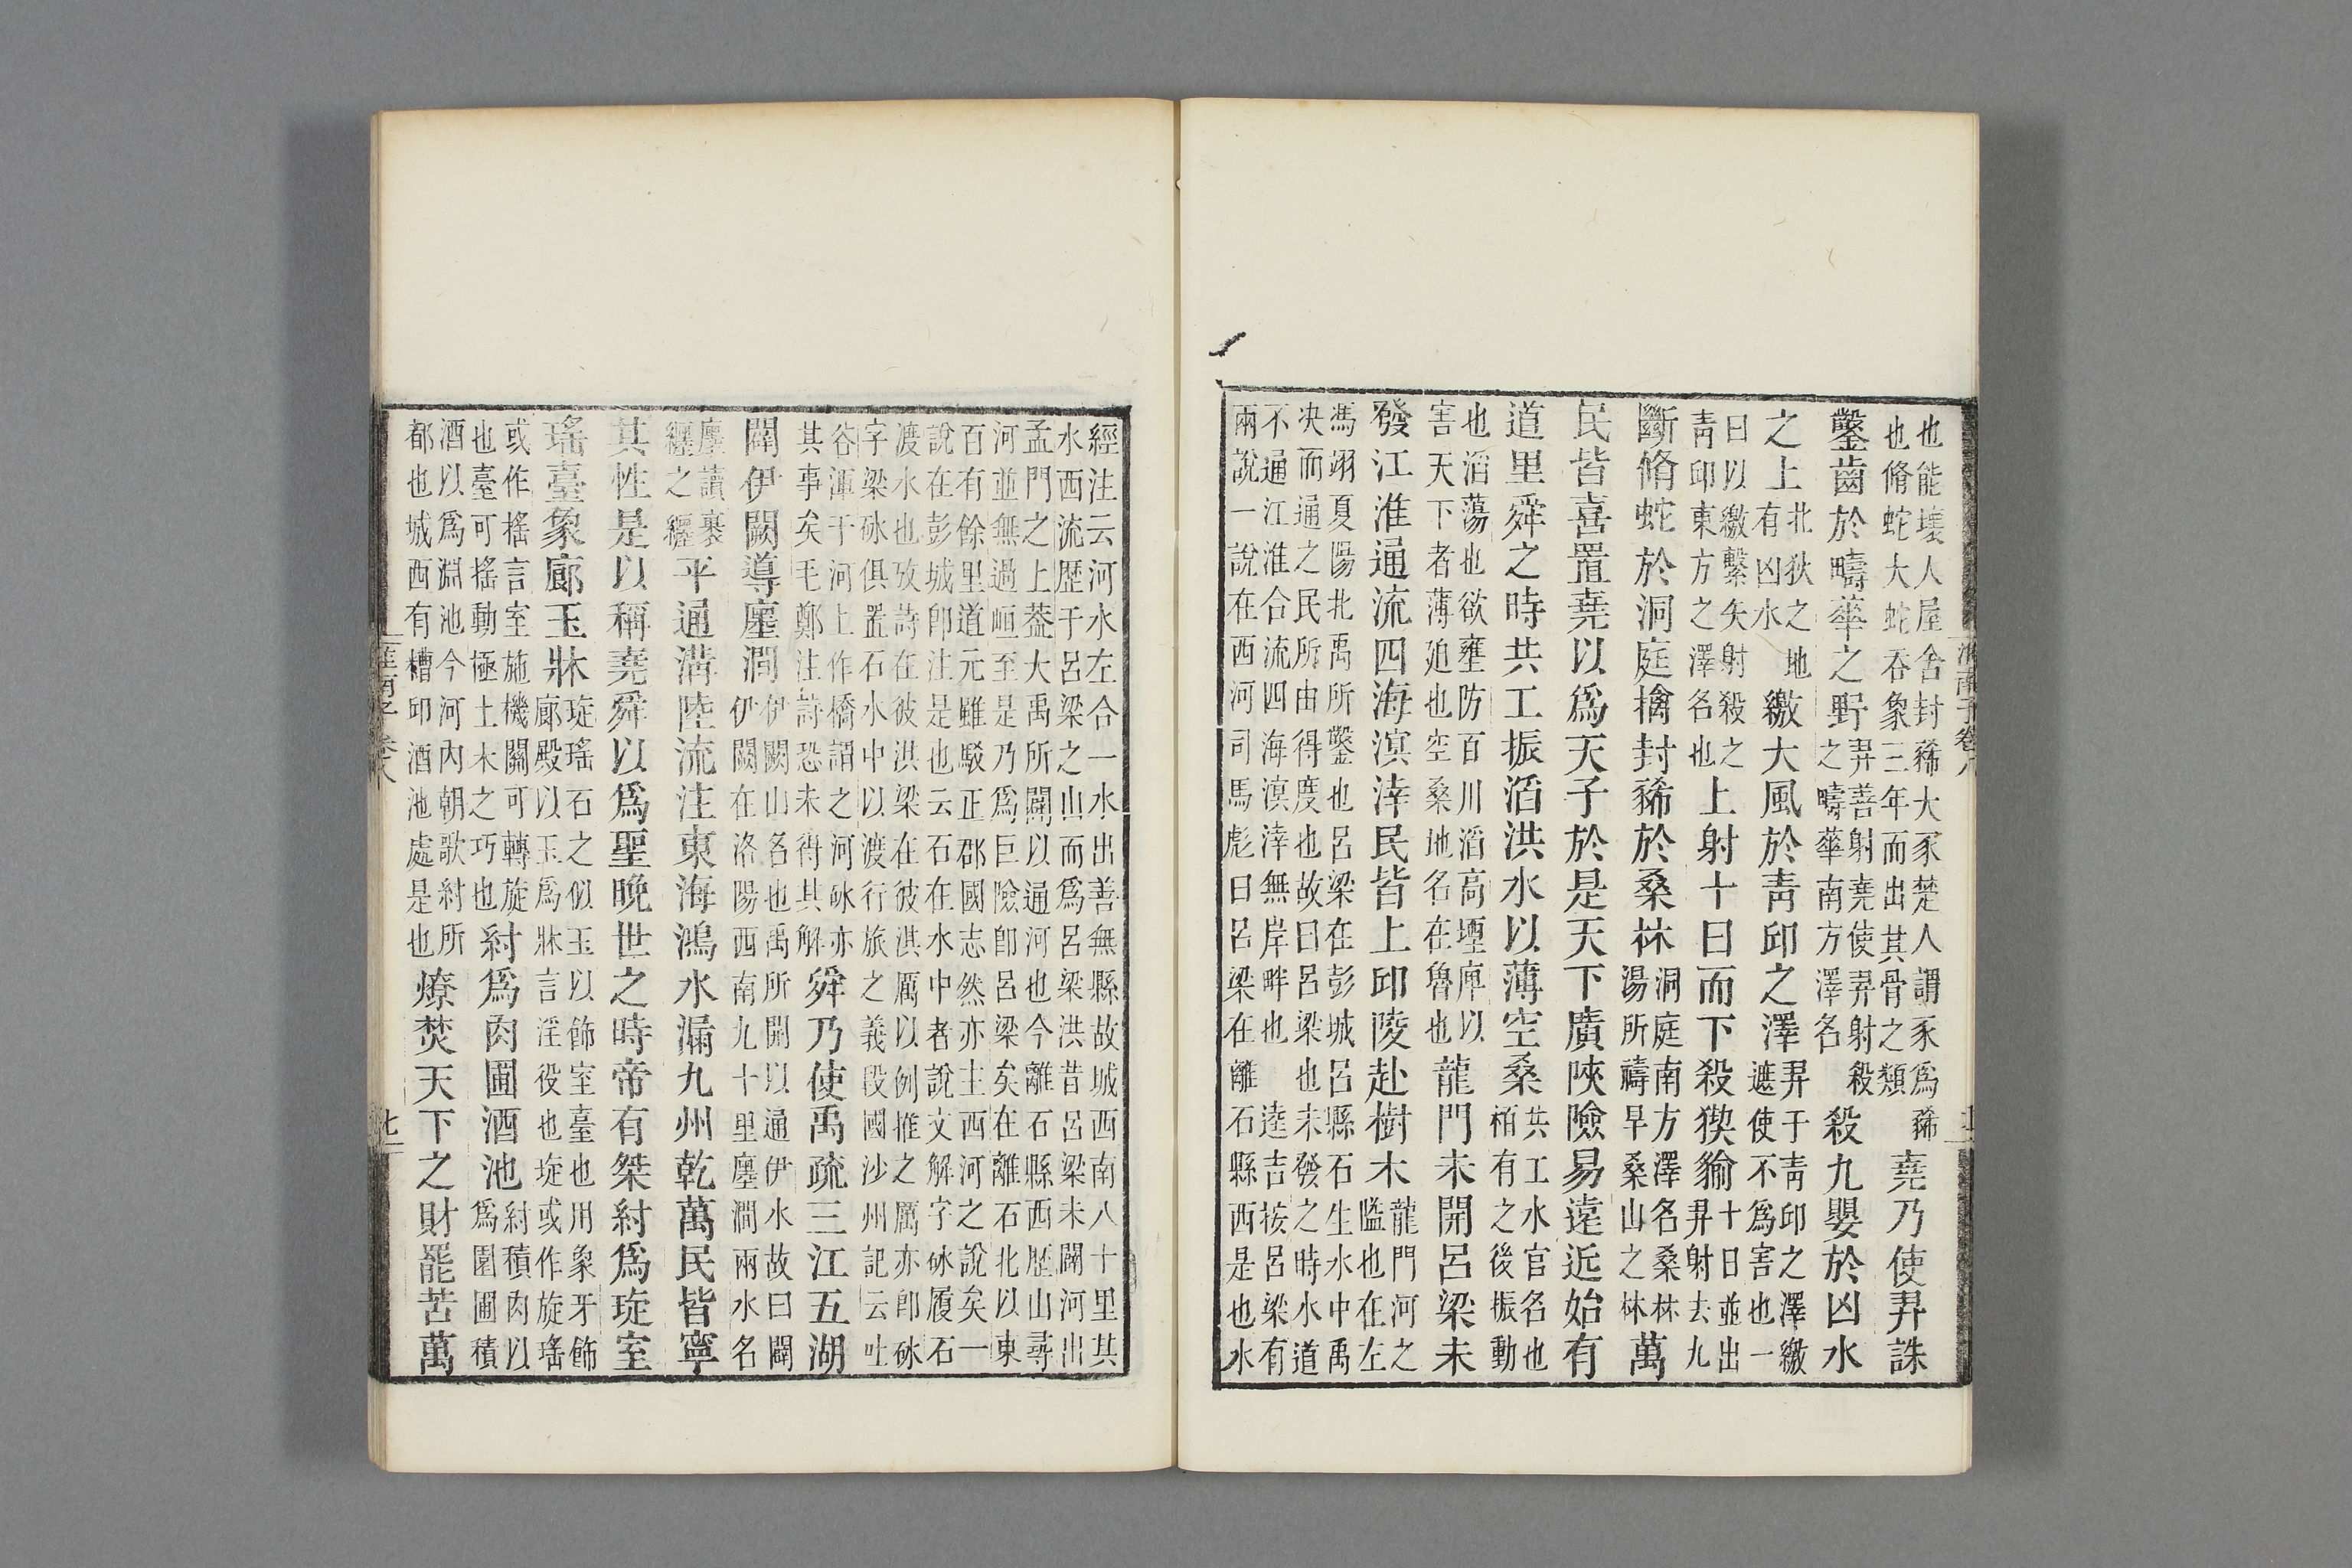 也能壞人屋舍封豨大豕楚人謂豕爲豨
也脩蛇大蛇吞象三年而出其骨之類
堯乃使羿誅
鑿齒於疇華之野
羿善射堯使羿射殺
之疇華南方澤名
殺九嬰於凶水
之上
北狄之地
有凶水
繳大風於靑邱之澤
羿于靑邱之澤繳
遮使不爲害也一
曰以繳繫矢射殺之
靑邱東方之澤名也
上射十日而下殺猰貐
十日並出
羿射去九
斷脩蛇於洞庭擒封豨於桑林
洞庭南方澤名桑林
湯所禱旱桑山之林
萬
民皆喜置堯以爲天子於是天下廣陜險易遠近始有
道里舜之時共工振滔洪水以薄空桑
共工水官名也
栢有之後振動
也滔蕩也欲壅防百川滔高堙庳以
害天下者薄廹也空桑地名在魯也
龍門未開呂梁未
發江淮通流四海溟涬民皆上邱陵赴樹木
龍門河之
隘也在左
馮翊夏陽北禹所鑿也呂梁在彭城呂縣石生水中禹
决而通之民所由得度也故曰呂梁也未發之時水道
不通江淮合流四海溟涬無岸畔也 逵吉按呂梁有
兩說一說在西河司馬彪曰呂梁在離石縣西是也水
淮南子卷八
經注云河水左合一水出善無縣故城西南八十里其
水西流歷于呂梁之山而爲呂梁洪昔呂梁未闢河出
孟門之上葢大禹所闢以通河也今離石縣西歷山尋
河並無過峘至是乃爲巨險卽呂梁矣在離石北以東
百有餘里道元雖駁正郡國志然亦主西河之說矣一
說在彭城卽注是也云石在水中者說文解字砅履石
渡水也攷詩在彼淇梁在彼淇厲以例推之厲亦卽砅
字梁砅俱置石水中以渡行旅之義段國沙州記云吐
谷渾于河上作橋謂之河砅亦
其事矣毛鄭注詩恐未得其解
舜乃使禹疏三江五湖
闢伊闕導廛澗
伊闕山名也禹所開以通伊水故曰闢
伊闕在洛陽西南九十里廛澗兩水名
廛讀裹
纏之纏
平通溝陸流注東海鴻水漏九州乾萬民皆寧
其性是以稱堯舜以爲聖晚世之時帝有桀紂爲琁室
瑤臺象廊玉牀
琁瑤石之似玉以飾室臺也用象牙飾
廊殿以玉爲牀言淫役也琁或作旋瑤
或作搖言室施機關可轉旋
也臺可搖動極土木之巧也
紂爲肉圃酒池
紂積肉以
爲園圃積
酒以爲淵池今河內朝歌紂所
都也城西有糟邱酒池處是也
燎焚天下之財罷苦萬
淮南子 卷八